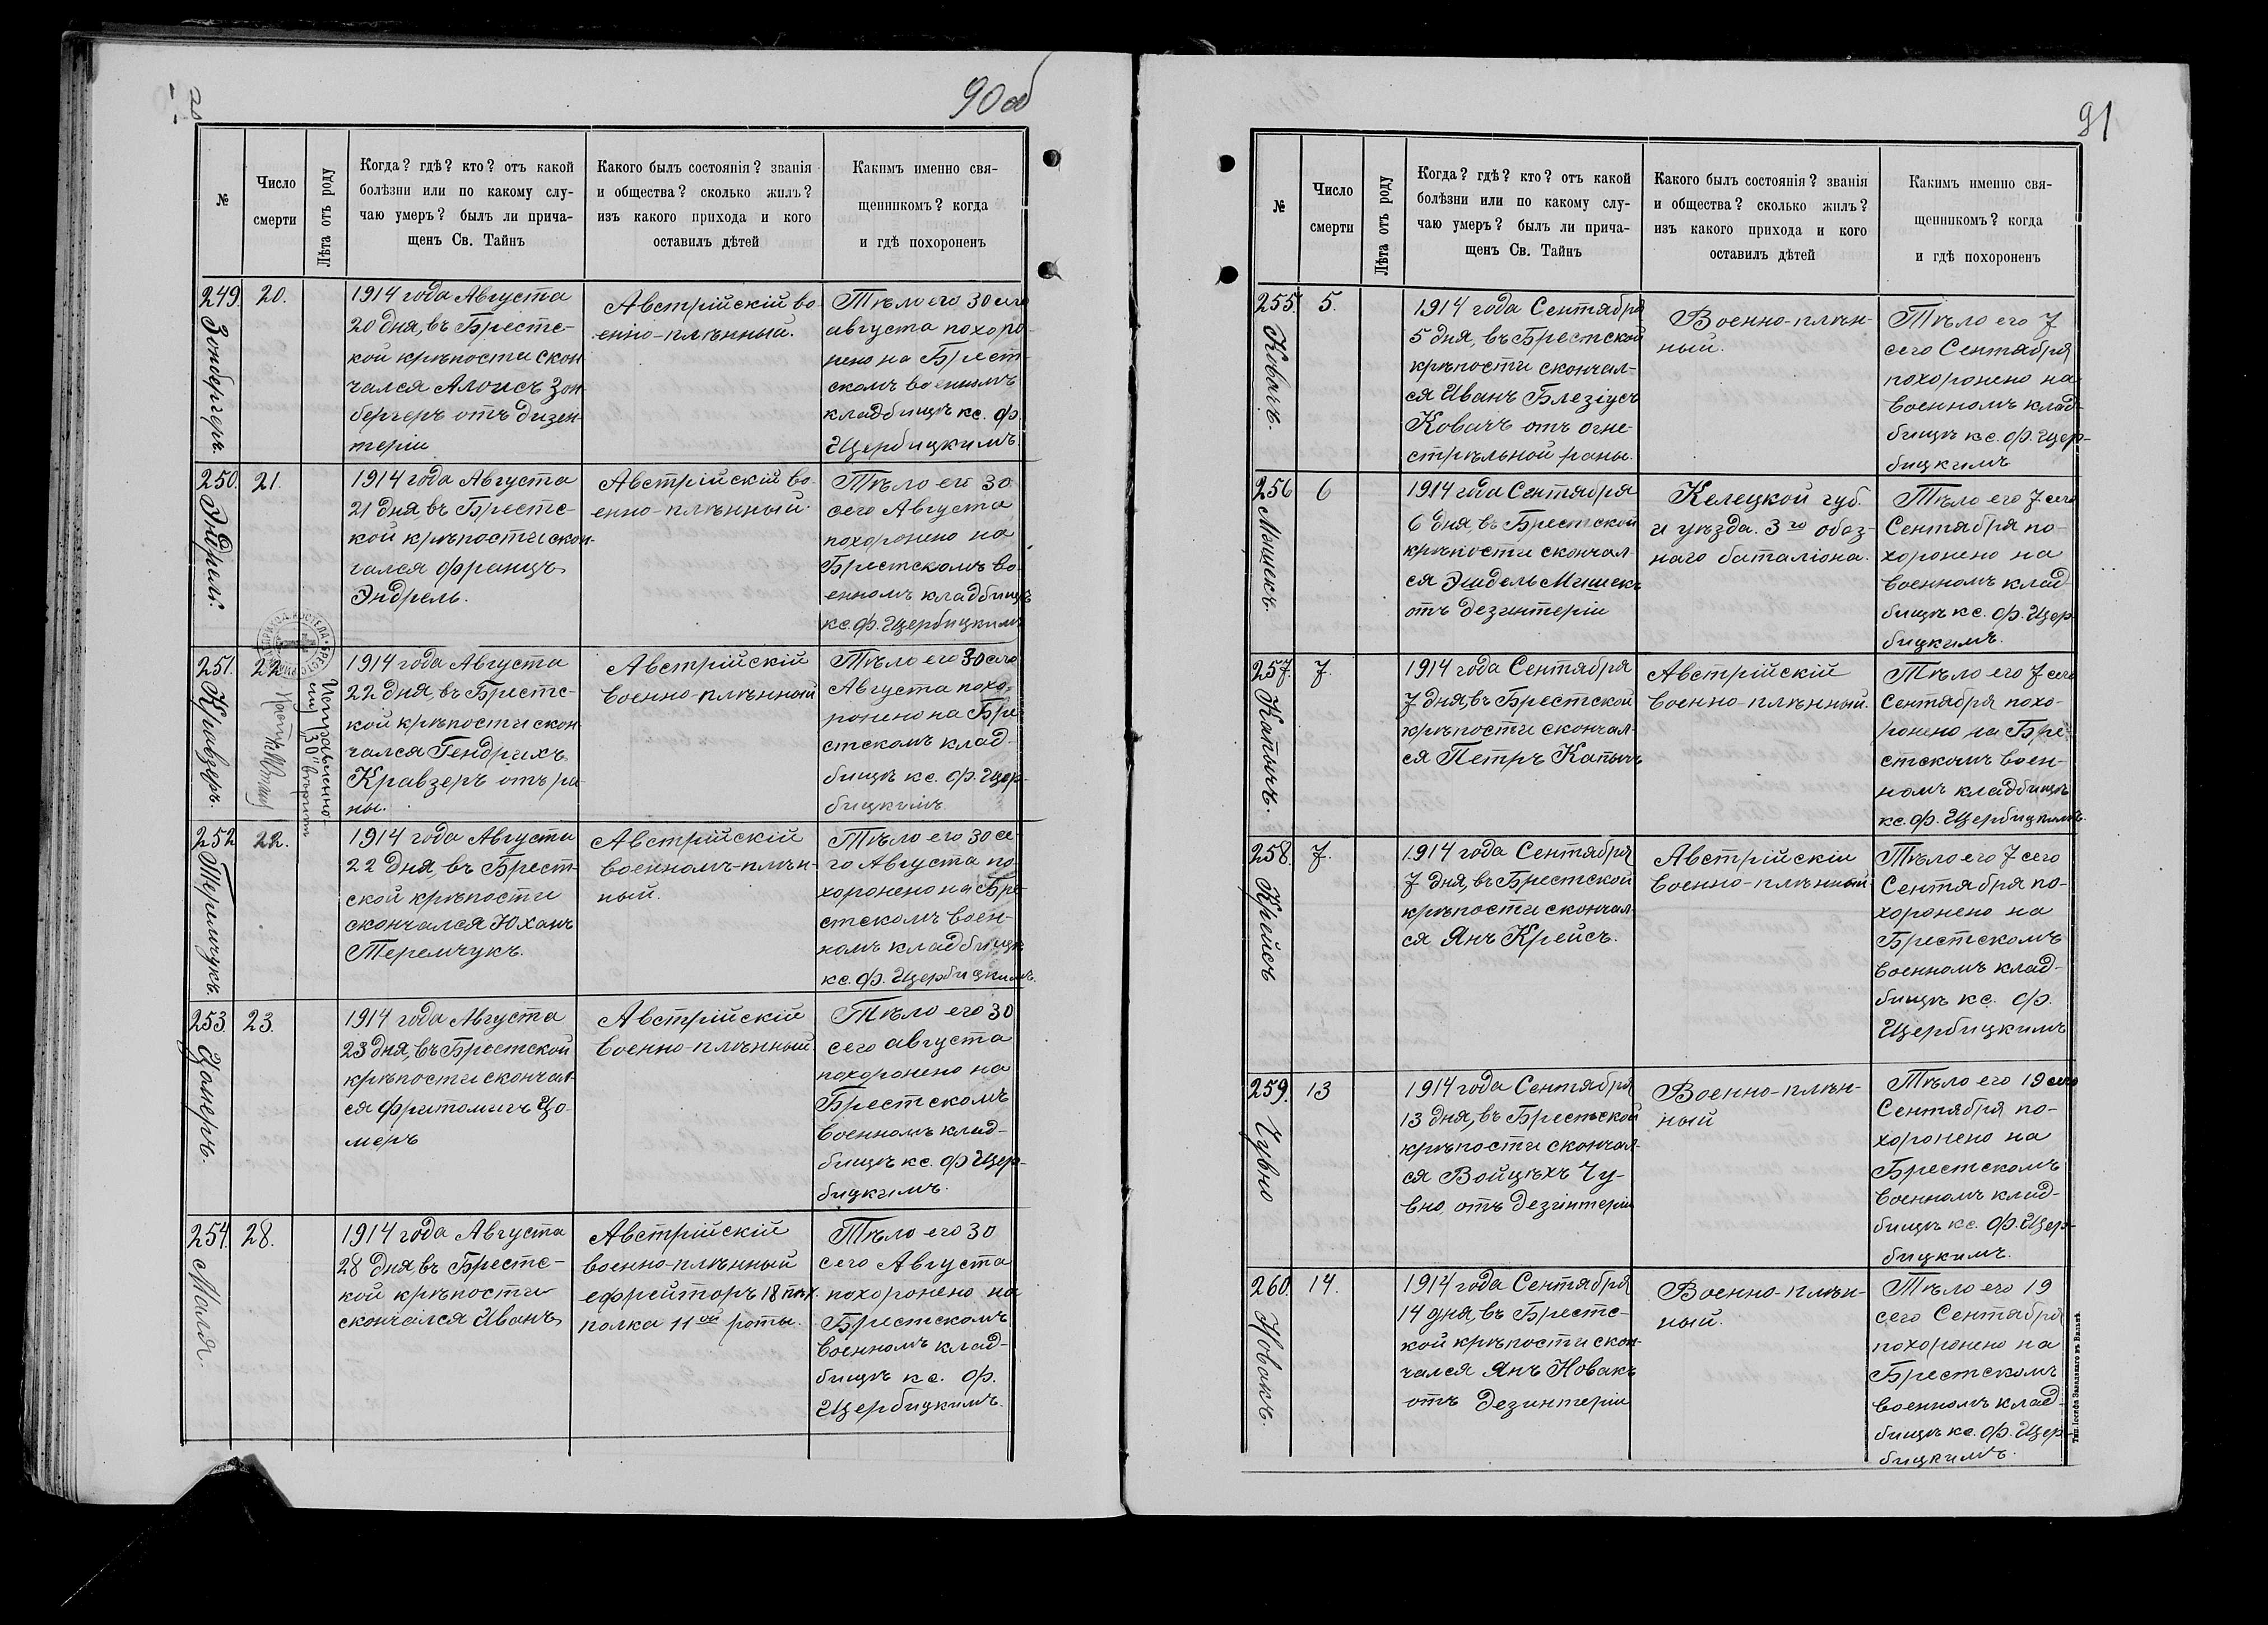 90 об
№
Число
смерти
Лѣта отъ роду
Когда? гдѣ? кто? отъ какой
болѣзни или по какому слу-
чаю умеръ? былъ ли прича-
щенъ Св. Тайнъ
Какого былъ состоянія? званія
и общества? сколько жилъ?
изъ какого прихода и кого
оставилъ дѣтей
Какимъ именно свя-
щенникомъ? когда
и гдѣ похороненъ
249.
Зонбергеръ.
20.
1914 года Августа
20 дня, въ Брестс-
кой крѣпости скон
чался Алоисъ Зон
бергеръ отъ дизен-
теріи
Австрійскій во
енно-плѣнный.
Тѣло его 30 сего
августа похоро
нено на Брест-
скомъ военномъ
кладбищѣ кс. Ф.
Щербицкимъ.
250.
Эндрель.
21.
1914 года Августа
21 дня, въ Брестс-
кой крѣпости скон-
чался Францъ
Эндрель.
Австрійскій во-
енно-плѣнный.
Тѣло его 30
сего Августа
похоронено на
Брестскомъ во
енномъ кладбищѣ
кс. Ф. Щербицкимъ
251.
Кравзеръ.
22
Исправленно-
му "30" вѣрить
1914 года Августа
22 дня, въ Брестс-
кой крѣпости скон
чался Гендрихъ
Кравзеръ отъ ра
ны.
Австрійскій
военно-плѣнный
Тѣло его 30 сего
Августа похо-
ронено на Бре
стскомъ клад-
бищѣ кс. Ф. Щер-
бицкимъ
252
Теремчукъ.
22.
1914 года Августа
22 дня, въ Брест-
ской крѣпости
скончался Юханъ
Теремчукъ.
Австрійскій
военномъ-плѣн-
ный.
Тѣло его 30 се-
го Августа по-
хоронено на Бре-
стскомъ воен-
номъ кладбищѣ
кс. Ф. Щербицкимъ.
253.
Цомеръ.
23.
1914 года Августа
23 дня, въ Брестской
крѣпости скончал-
ся Цо-
меръ
Австрійскій
военно-плѣнный.
Тѣло его 30
сего августа
похоронено на
Брестскомъ
военномъ клад-
бищѣ кс. Ф Щер-
бицкимъ.
254.
Маля.
28.
1914 года Августа
28 дня, въ Брестс-
кой крѣпости
скончался Иванъ
Австрійскій
военно-плѣнный
ефрейторъ 18 пѣх.
полка 11ой роты.
Тѣло его 30
сего Августа
похоронено на
Брестскомъ
военномъ клад-
бищѣ кс. Ф.
Щербицкимъ.
91
№
Число
смерти
Лѣта отъ роду
Когда? гдѣ? кто? отъ какой
болѣзни или по какому слу-
чаю умеръ? былъ ли прича-
щенъ Св. Тайнъ
Какого былъ состоянія? званія
и общества? сколько жилъ?
изъ какого прихода и кого
оставилъ дѣтей
Какимъ именно свя-
щенникомъ? когда
и гдѣ похороненъ
255.
Ковачъ.
5.
1914 года Сентября
5 дня, въ Брестской
крѣпости скончал-
ся Иванъ Блезіусъ
Ковачъ отъ огне-
стрѣльной раны.
Военно-плѣн-
ный.
Тѣло его 7
сего Сентября
похоронено на
военномъ клад-
бищѣ кс. Ф. Щер-
бицкимъ
256
Мишекъ.
6
1914 года Сентября
6 дня, въ Брестской
крѣпости скончал
ся Эшдель Мишекъ
отъ дезинтеріи
Келецкой губ.
и уѣзда. 3го обоз-
наго баталіона.
Тѣло его 7 сего
Сентября по-
хоронено на
военномъ клад-
бищѣ кс. Ф. Щер
бицкимъ.
257.
Капычъ.
7.
1914 года Сентября
7 дня, въ Брестской
крѣпости скончал-
ся Петръ Капычъ
Австрійскій
военно-плѣнный.
Тѣло его 7 сего
Сентября похо-
ронено на Бре-
стскомъ воен-
номъ кладбищѣ
кс. Ф. Щербицкимъ.
258.
Крейсъ
7.
1914 года Сентября
7 дня, въ Брестской
крѣпости скончал-
ся Янъ Крейсъ.
Австрійскій
военно-плѣнный
Тѣло его 7 сего
Сентября по-
хоронено на
Брестскомъ
военномъ клад-
бищѣ кс. Ф.
Щербицкимъ
259.
Чувно
13
1914 года Сентября
13 дня, въ Брестской
крѣпости скончал-
ся Войцѣхъ Чу-
вно отъ дезинтеріи
Военно-плѣн-
ный
Тѣло его 19 сего
Сентября по-
хоронено на
Брестскомъ
военномъ клад-
бищѣ кс. Ф. Щер-
бицкимъ.
260.
Новакъ.
14.
1914 года Сентября
14 дня, въ Брестс-
кой крѣпости скон-
чался Янъ Новакъ
отъ дезинтеріи
Военно-плѣн-
ный.
Тѣло его 19
сего Сентября
похоронено на
Брестскомъ
военномъ клад-
бищѣ кс. Ф. Щер-
бицкимъ.
Тип. Іосифа Завадзкаго въ Вильнѣ